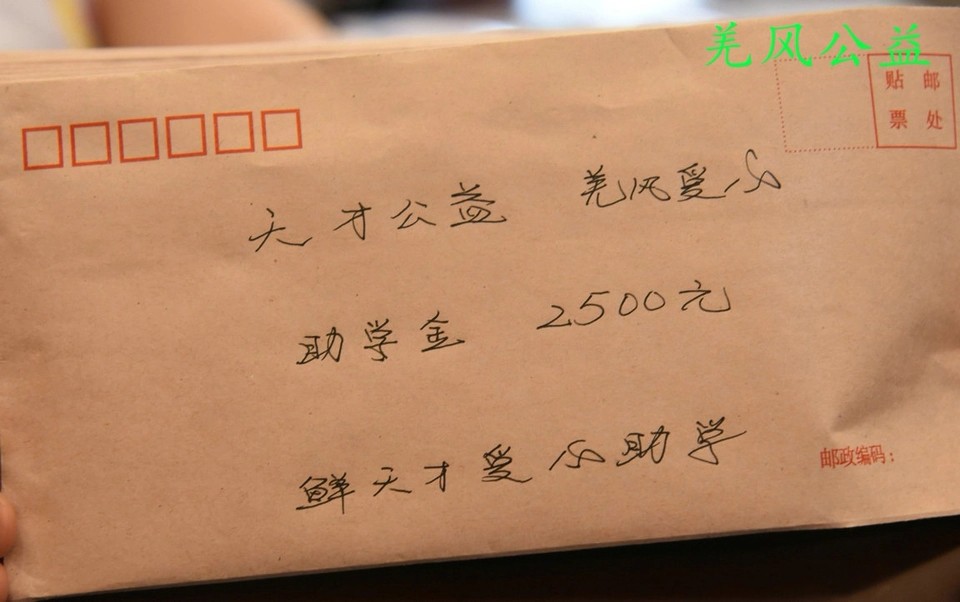 羌风公益
贴 邮
票 处
天才公益 羌风爱心
助学金 2500元
鲜天才爱心助学
邮政编码: